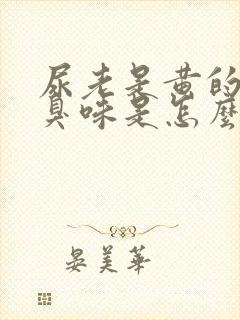 尿老是黄的
臭味是怎麼
晏美華